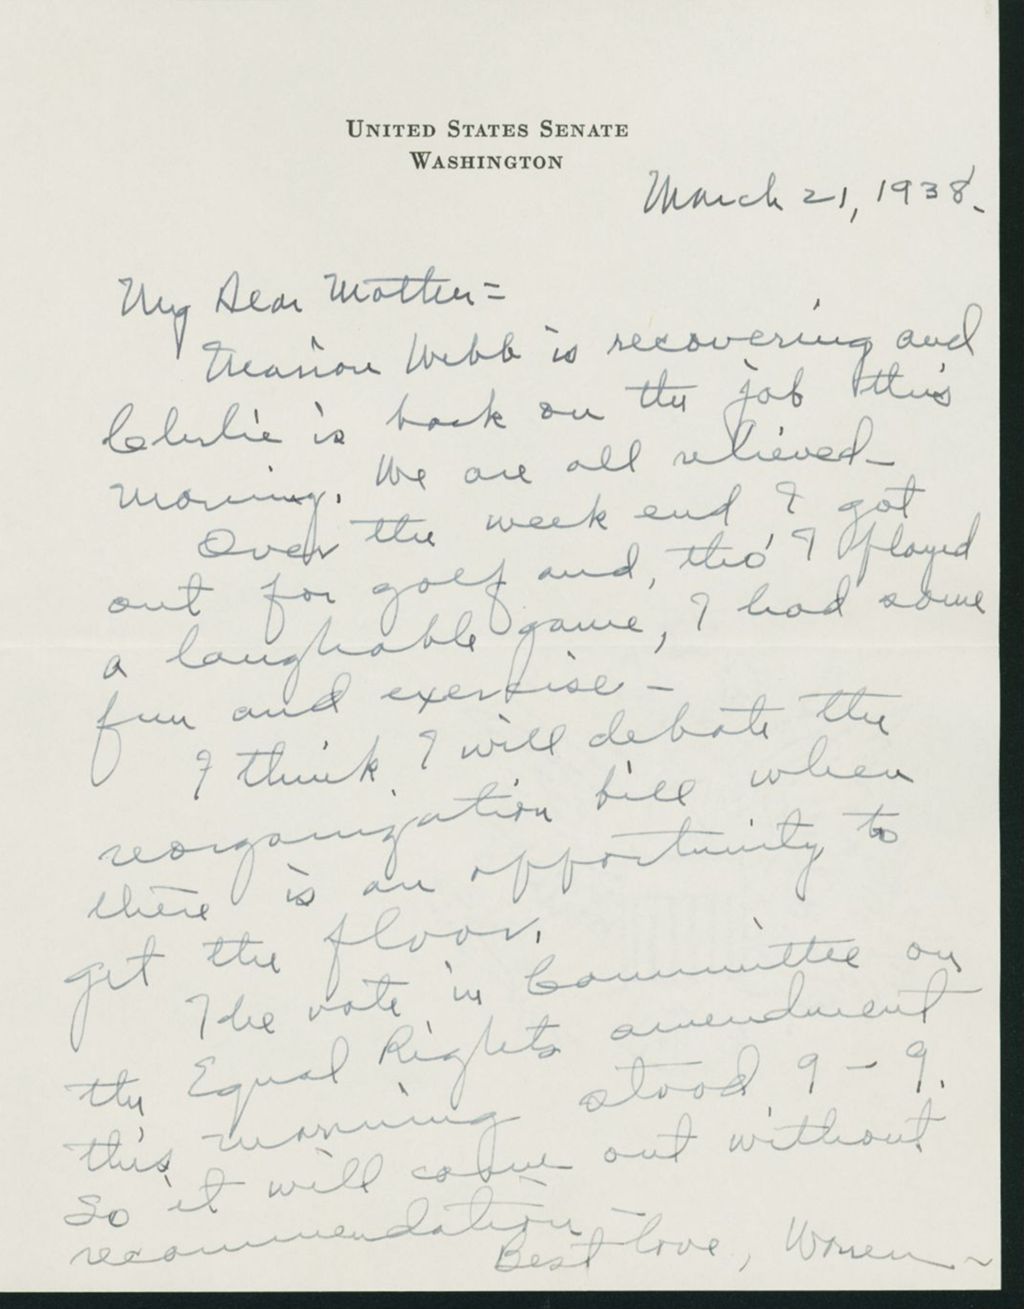 UNITED STATES SENATE
WASHINGTON
March 21, 1938.
My Dear Mother=
Marion Webb is recovering and
Leslie is back on the job this
morning. We are all relieved-
Over the week end I got
out for golf and, tho' I played
a laughable game, I had some
fun and exercise-
I think I will debate the
reorganization bill when
there is an opportunity to
get the floor.
The vote in Committee on
the Equal Rights amendment
this morning stood 9-9.
So it will come out without
recommendation-
Best love, Warren-